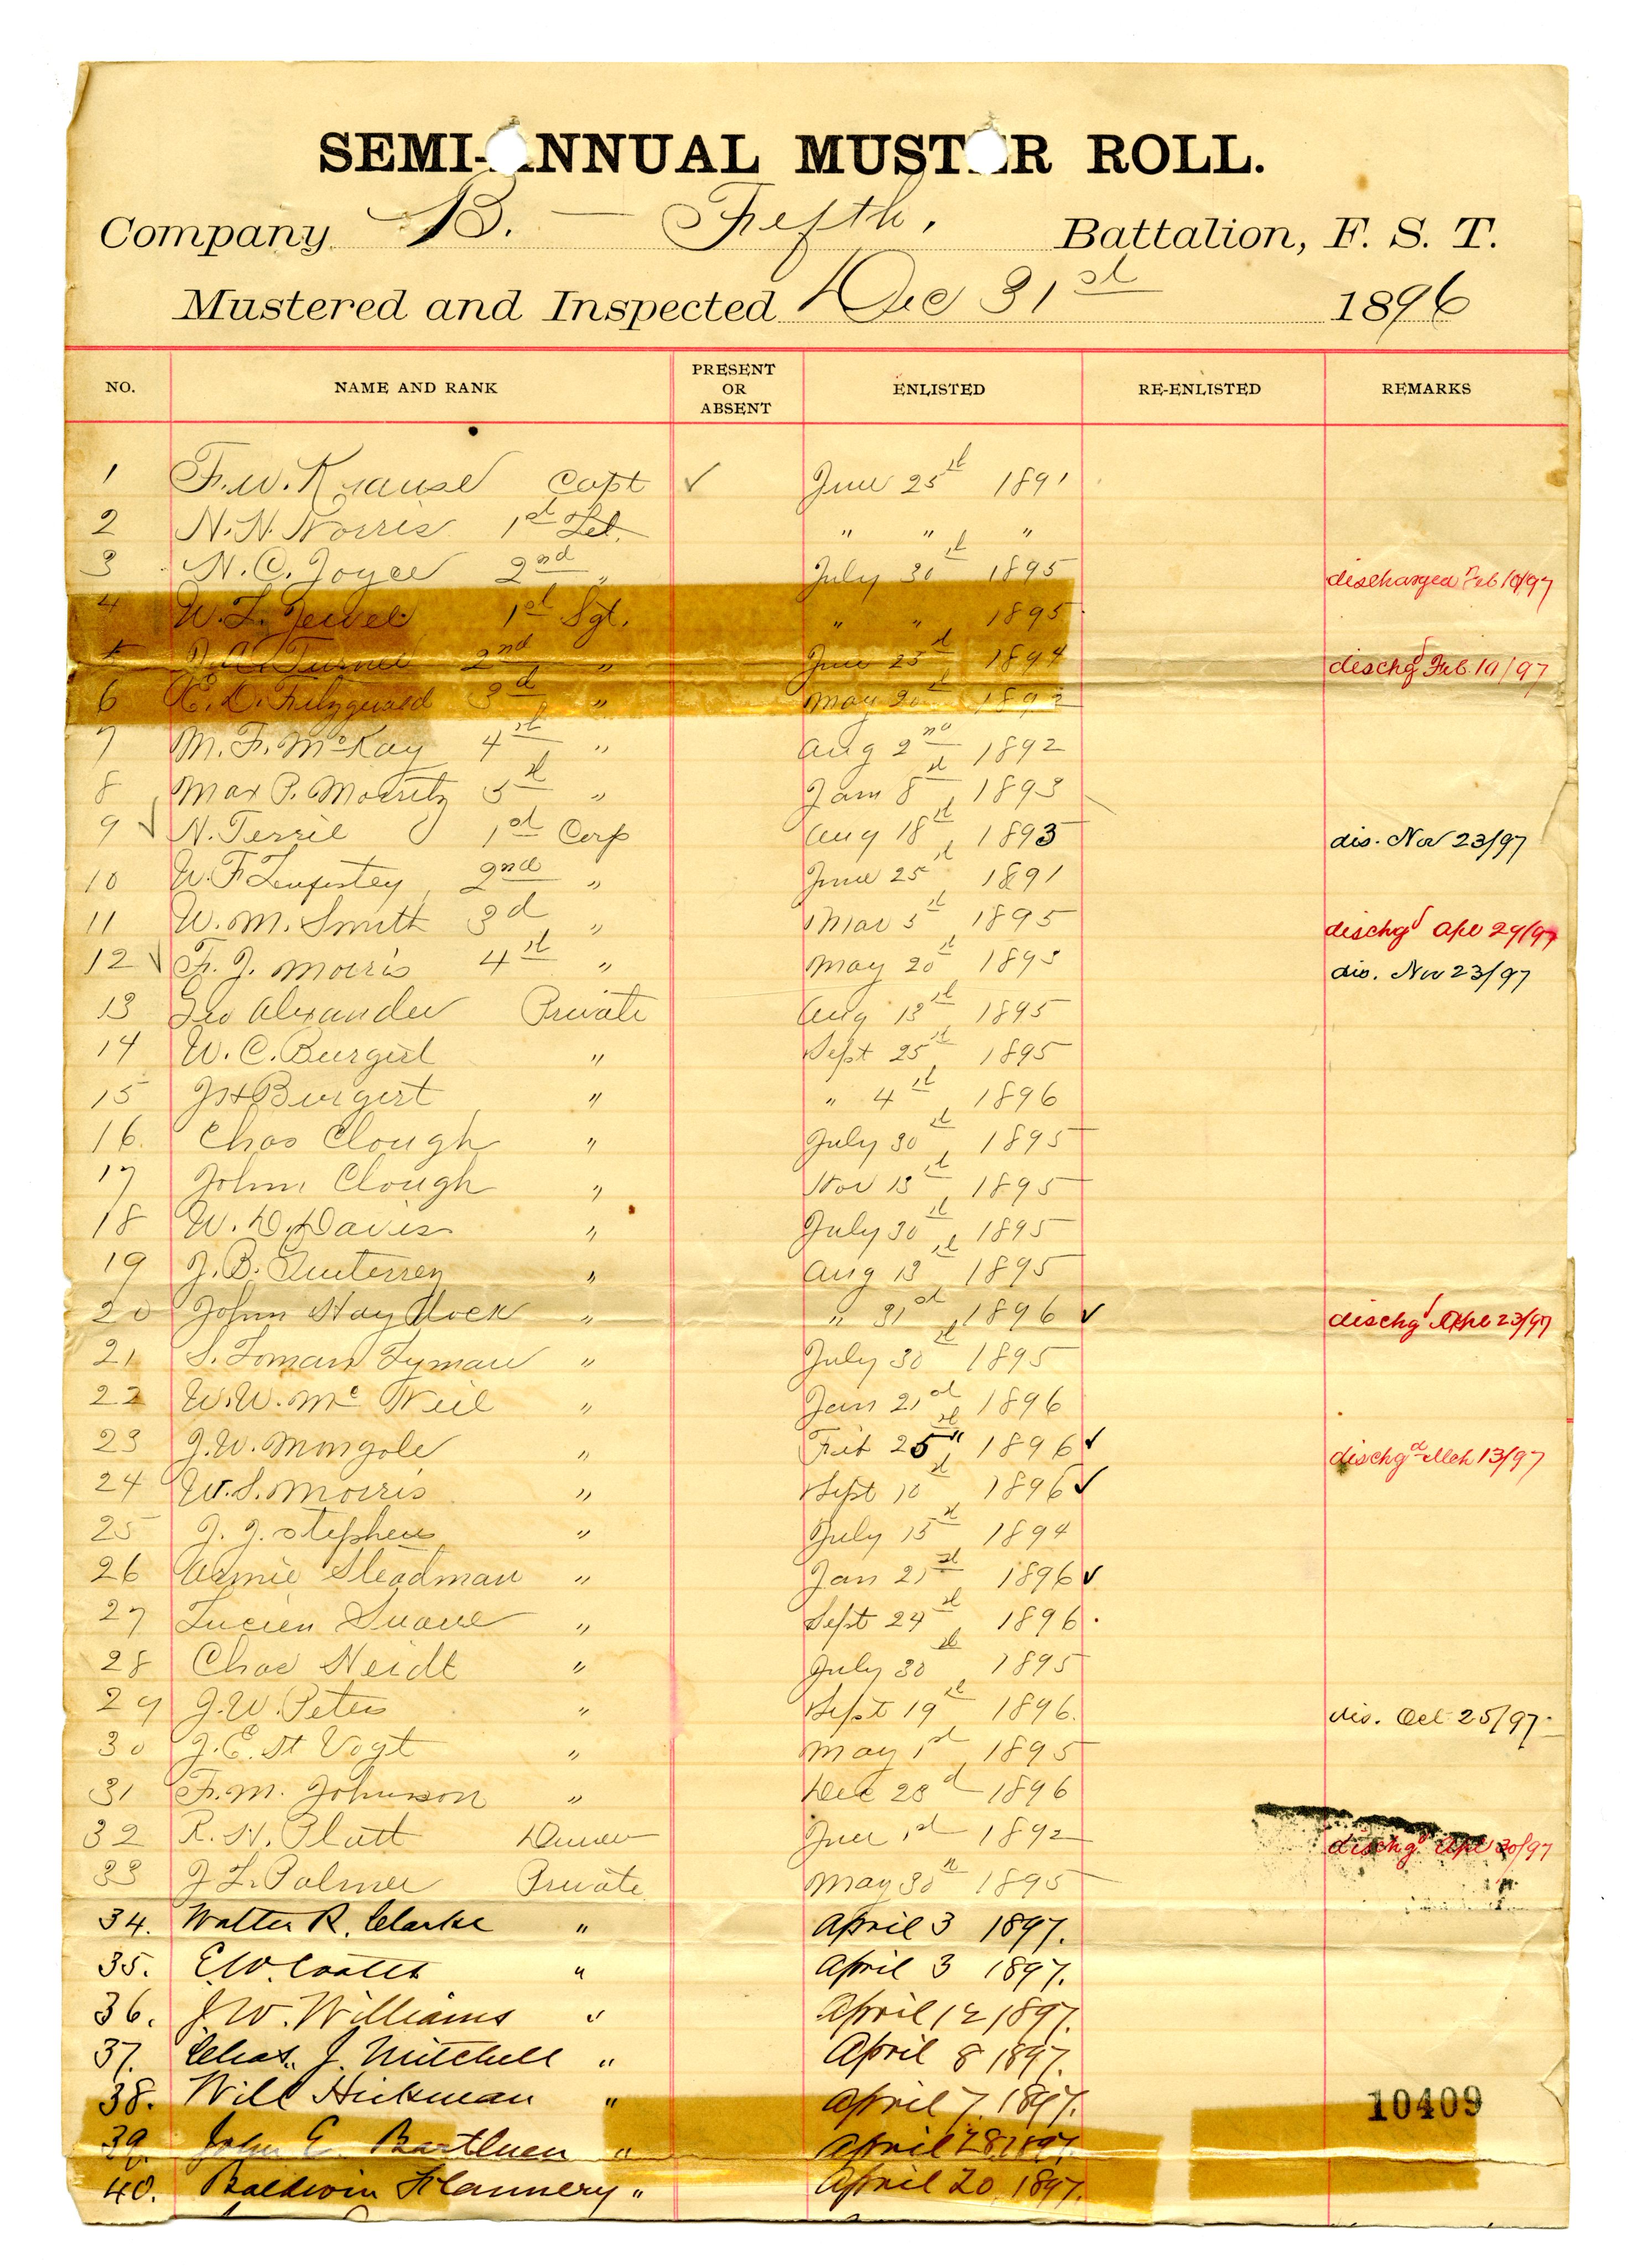 SEMI-ANNUAL MUSTER ROLL.
Company B. — Fifth, Battalion, F. S. T.
Mustered and Inspected Dec 31st 1896
NO. NAME AND RANK PRESENT OR ABSENT ENLISTED RE-ENLISTED REMARKS
1 F. W. Krause Capt ✓ June 25st 1891
2 N. N. Norris 1st Lt. " " "
3 N. C. Joyce 2nd " July 30st 1895 discharged Feb 10/97
4 W. L. Jewel 1st Sgt. " " 1895
5 Turner 2nd " June 25st 1894 dischgd Feb. 10/97
6 C. D. Fitzgerald 3d " May 20st 1892
7 M. F. McKay 4st " Aug 2nd 1892
8 Max P. Moritz 5st " Jan 8st 1893
9 ✓ N. Terril 1st Corp Aug 18st 1893 dis. Nov 23/97
10 W. F. 2nd " June 25st 1891
11 W. M. Smith 3d " Mar 5st 1895 dischgd Apl 29/97
12 ✓ F. J. Morris 4st " May 20st 1895 dis. Nov 23/97
13 Geo Alexander Private Aug 13st 1895
14 W. C. Burgert " Sept 25st 1895
15 J H Burgert " " 4st 1896
16. Chas Clough " July 30st 1895
17 John Clough " Nov 13st 1895
18 W. D. Davis " July 30st 1895
19 J. B. " Aug 13st 1895
20 John Haydock " " 31st 1896 ✓ dischgd Apl 23/97
21 S. Loman Lyman " July 30st 1895
22 W. W. McNeil " Jan 21st 1896
23 J. W. Mongole " Feb 25st 1896 ✓ dischgd Mch 13/97
24 W. S. Morris " Sept 10st 1896 ✓
25 J. J. Stephens " July 15st 1894
26 Armie Steadman " Jan 21st 1896 ✓
27 Lucien " Sept 24st 1896.
28 Chas Neidt " July 30st 1895
29 J. W. Peters " Sept 19st 1896. dis. Oct 25/97.
30 J. E. St Vogt " May 1st 1895
31 F. M. Johnson " Dec 23d 1896
32 R. H. Platt June 1st 1892 dischgd Apl 30/97
33 J L. Palmer Private May 30st 1895
34. Walter R. Clarke " April 3 1897.
35. E. W. Coates " April 3 1897.
36. J. W. Williams " April 12 1897.
37. Chas. J. Mitchell " April 8 1897.
38. Will Hickman " April 7. 1897.
10409
39. John E " April 28 1897.
40. Baldwin Flannery " April 20 1897.